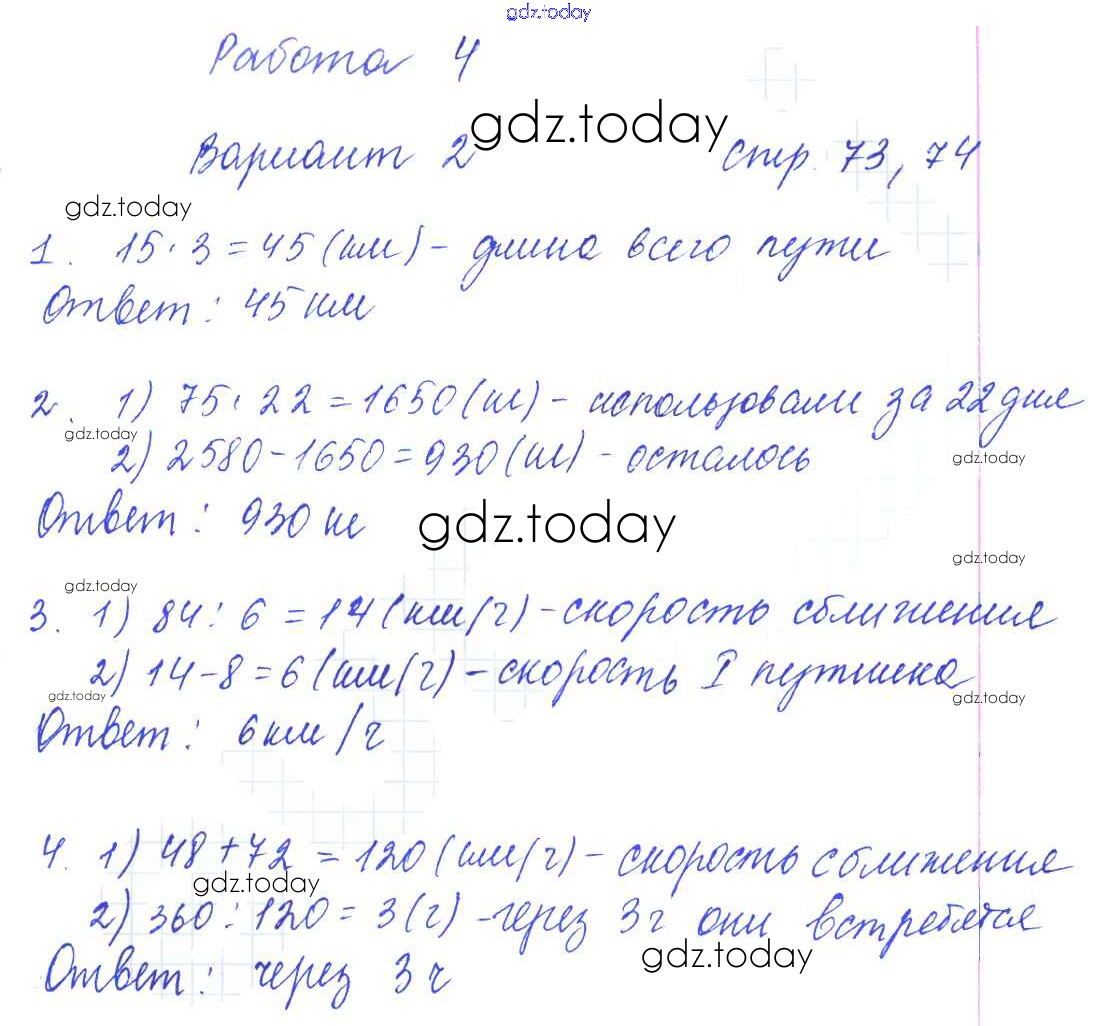 gdz.today
Работа 4
gdz.today
Вариант 2 Стр. 73, 74
gdz.today
1. 15 · 3 = 45 (км) - длина всего пути
Ответ: 45 км
2. 1) 75 · 22 = 1650 (кг) - использовали за 22 дня
gdz.today
2) 2580 - 1650 = 930 (кг) - осталось
gdz.today
Ответ: 930 кг
gdz.today
gdz.today
gdz.today
3. 1) 84 : 6 = 14 (км/ч) - скорость сближения
2) 14 - 8 = 6 (км/ч) - скорость I путника
gdz.today
gdz.today
Ответ: 6 км/ч
4. 1) 48 + 72 = 120 (км/ч) - скорость сближения
gdz.today
2) 360 : 120 = 3 (ч) - через 3 ч они встретятся
gdz.today
Ответ: через 3 ч